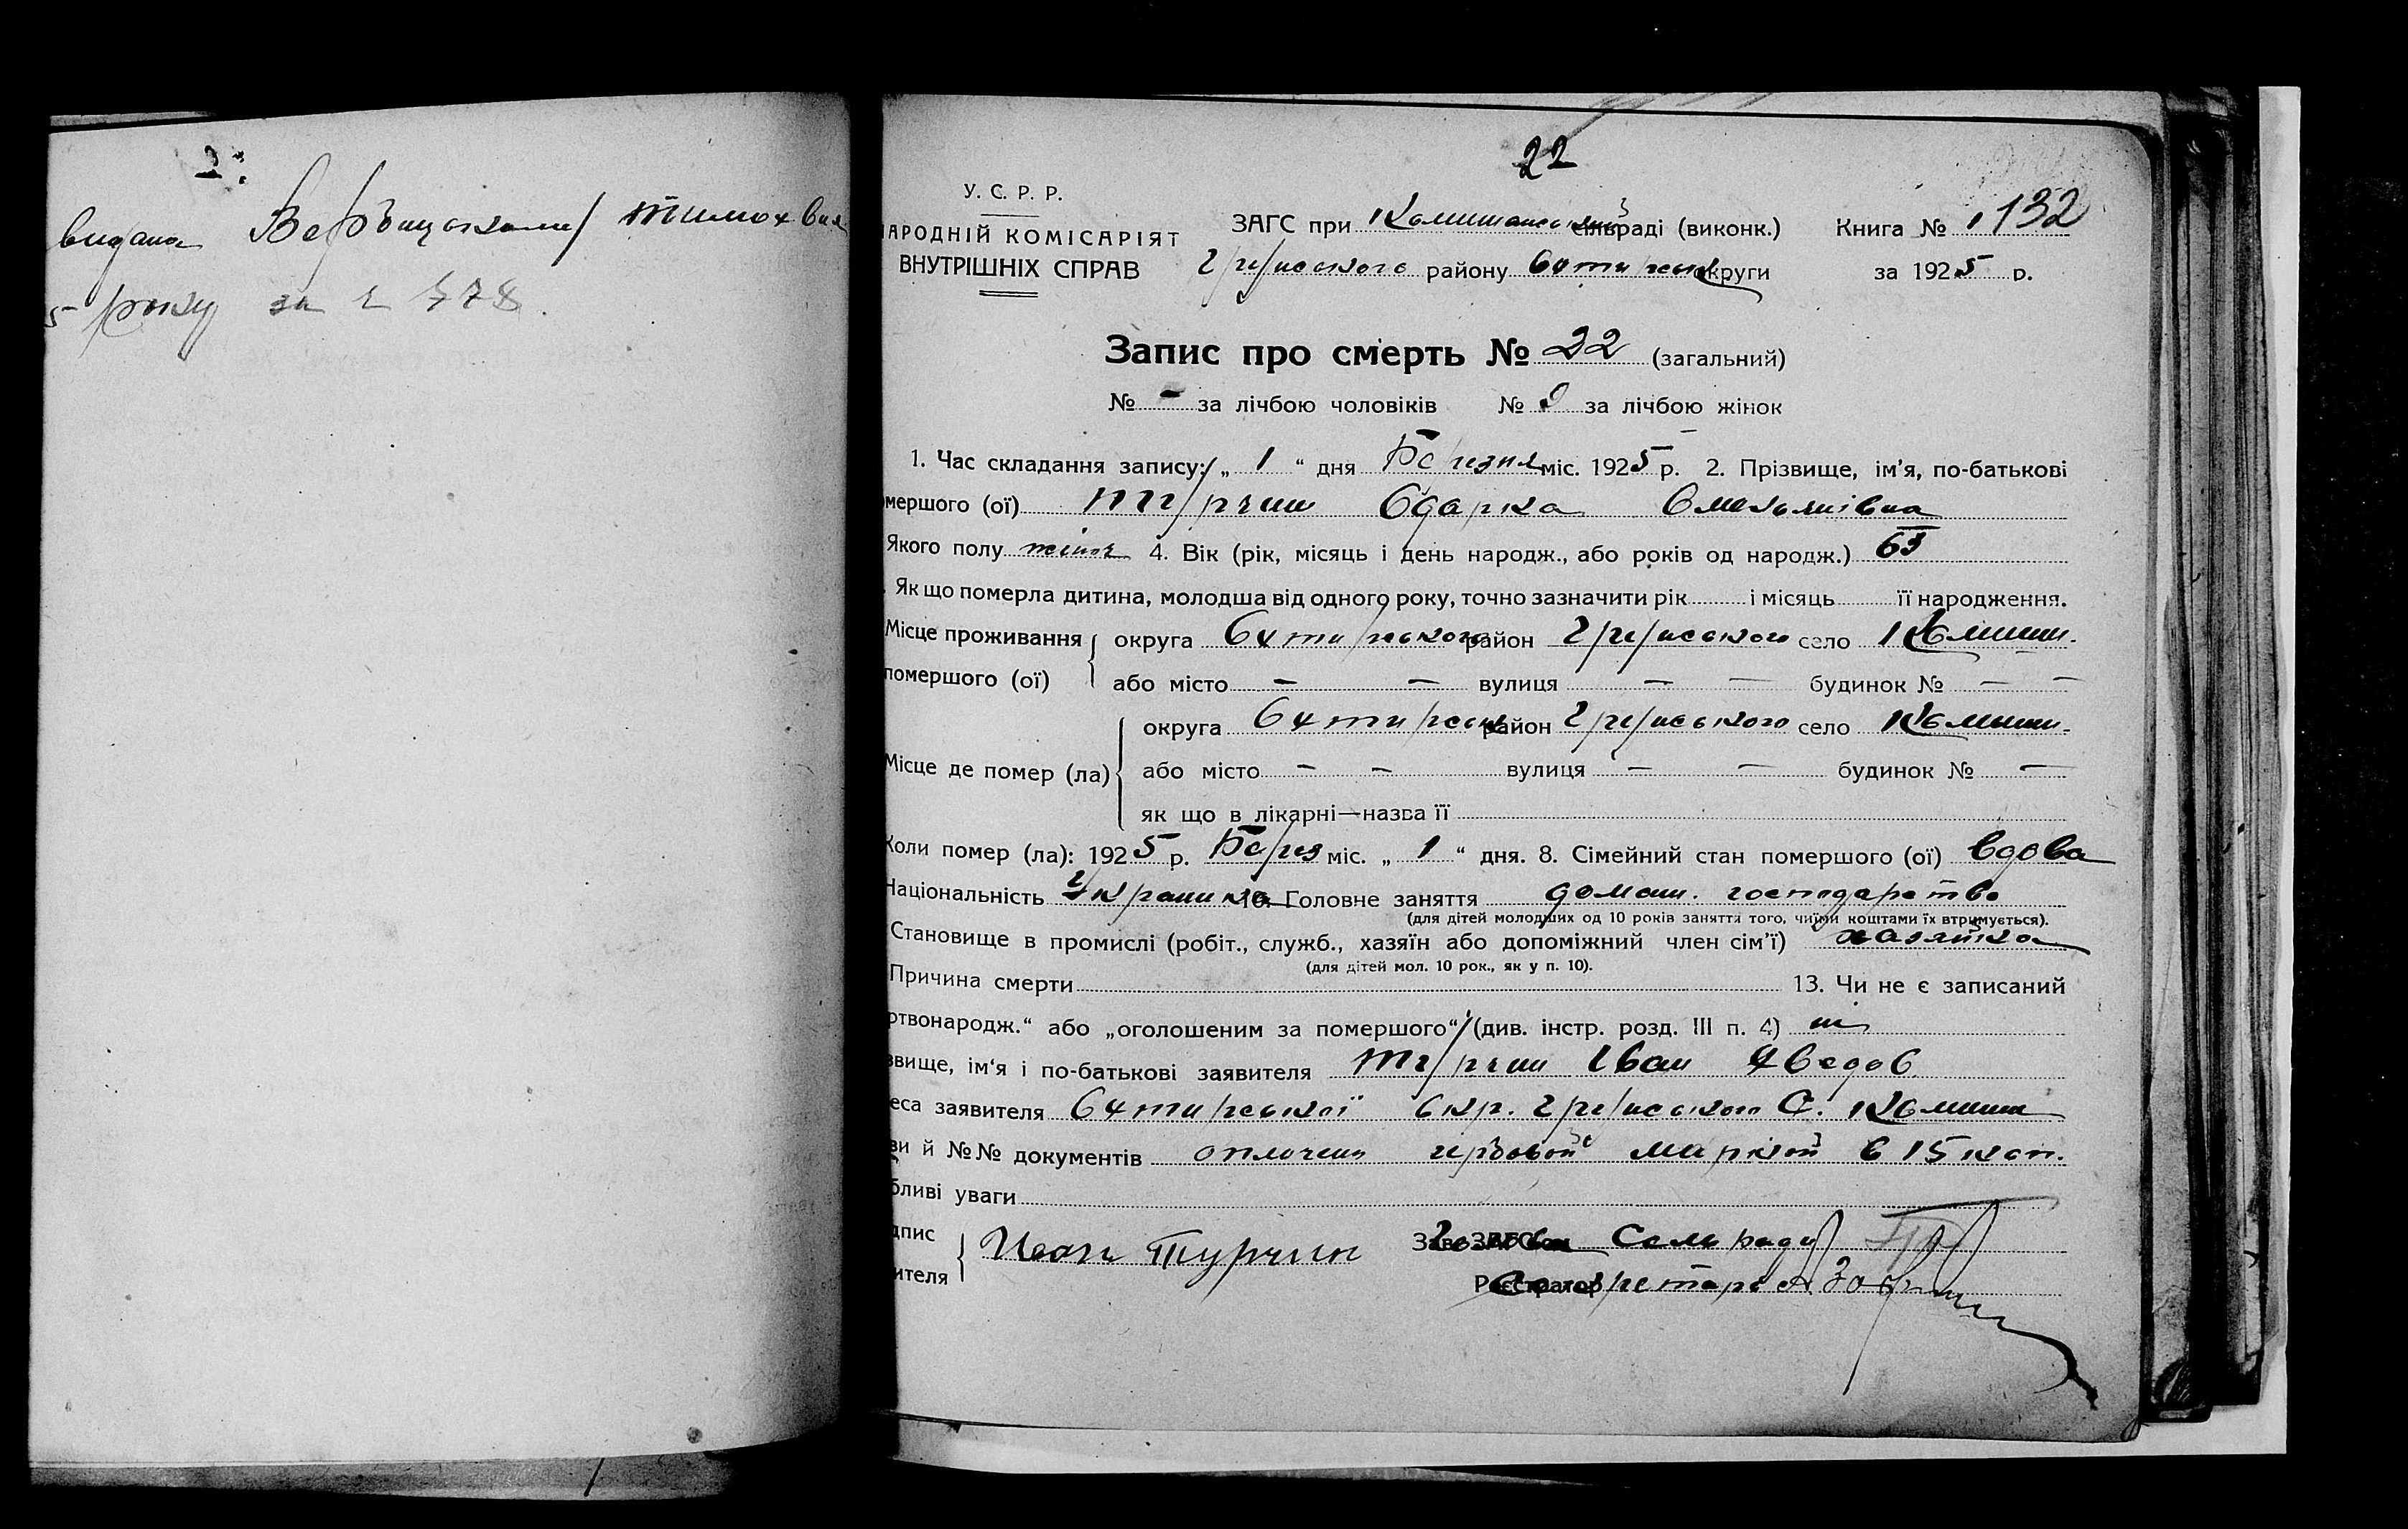 видана Вербицькому
року за 478
22
У. С. Р. Р.
АРОДНІЙ КОМІСАРІЯТ
ВНУТРІШНІХ СПРАВ
ЗАГС при Комишанській сільраді (виконк.)
району Охтирськ округи
Книга № 132
за 1925 р.
Запис про смерть № 22 (загальний)
№ - за лічбою чоловіків № 9 за лічбою жінок
1. Час складання запису: „ 1 “ дня Березня міс. 1925 р. 2. Прізвище, ім’я, по-батькові
мершого (ої) Турчин Одарка Омельянівна
Якого полу жіноч 4. Вік (рік, місяць і день народж., або років од народж.) 63
Як що померла дитина, молодша від одного року, точно зазначити рік і місяць її народження.
Місце проживання помершого (ої)
округа Охтирського район Грунського село Комиши.
або місто — — вулиця — — будинок № — —
Місце де помер (ла)
округа Охтирськ район Грунського село Комиши.
або місто — — вулиця — — будинок № —
як що в лікарні—назва її
Коли помер (ла): 1925 р. Берез міс. „ 1 “ дня. 8. Сімейний стан помершого (ої) вдова
Національність Українка 10. Головне заняття домаш. господарство
(для дітей молодших од 10 років заняття того, чиїми коштами їх втримується).
Становище в промислі (робіт., служб., хазяїн або допоміжний член сім’ї) хазяйка
(для дітей мол. 10 рок., як у п. 10).
Причина смерти 13. Чи не є записаний
ртвонародж.“ або „оголошеним за помершого“ (див. інстр. розд. III п. 4) ні
звище, ім‘я і по-батькові заявителя Турчин Іван
еса заявителя Охтирської Окр. Грунського С. Комиши
ви й №№ документів оплочено гербовой маркой в 15 коп.
бливі уваги
дпис
ителя
Иван Турчин
Зав. ЗАГСом Голова Сельради
Реєстратор Секретарь